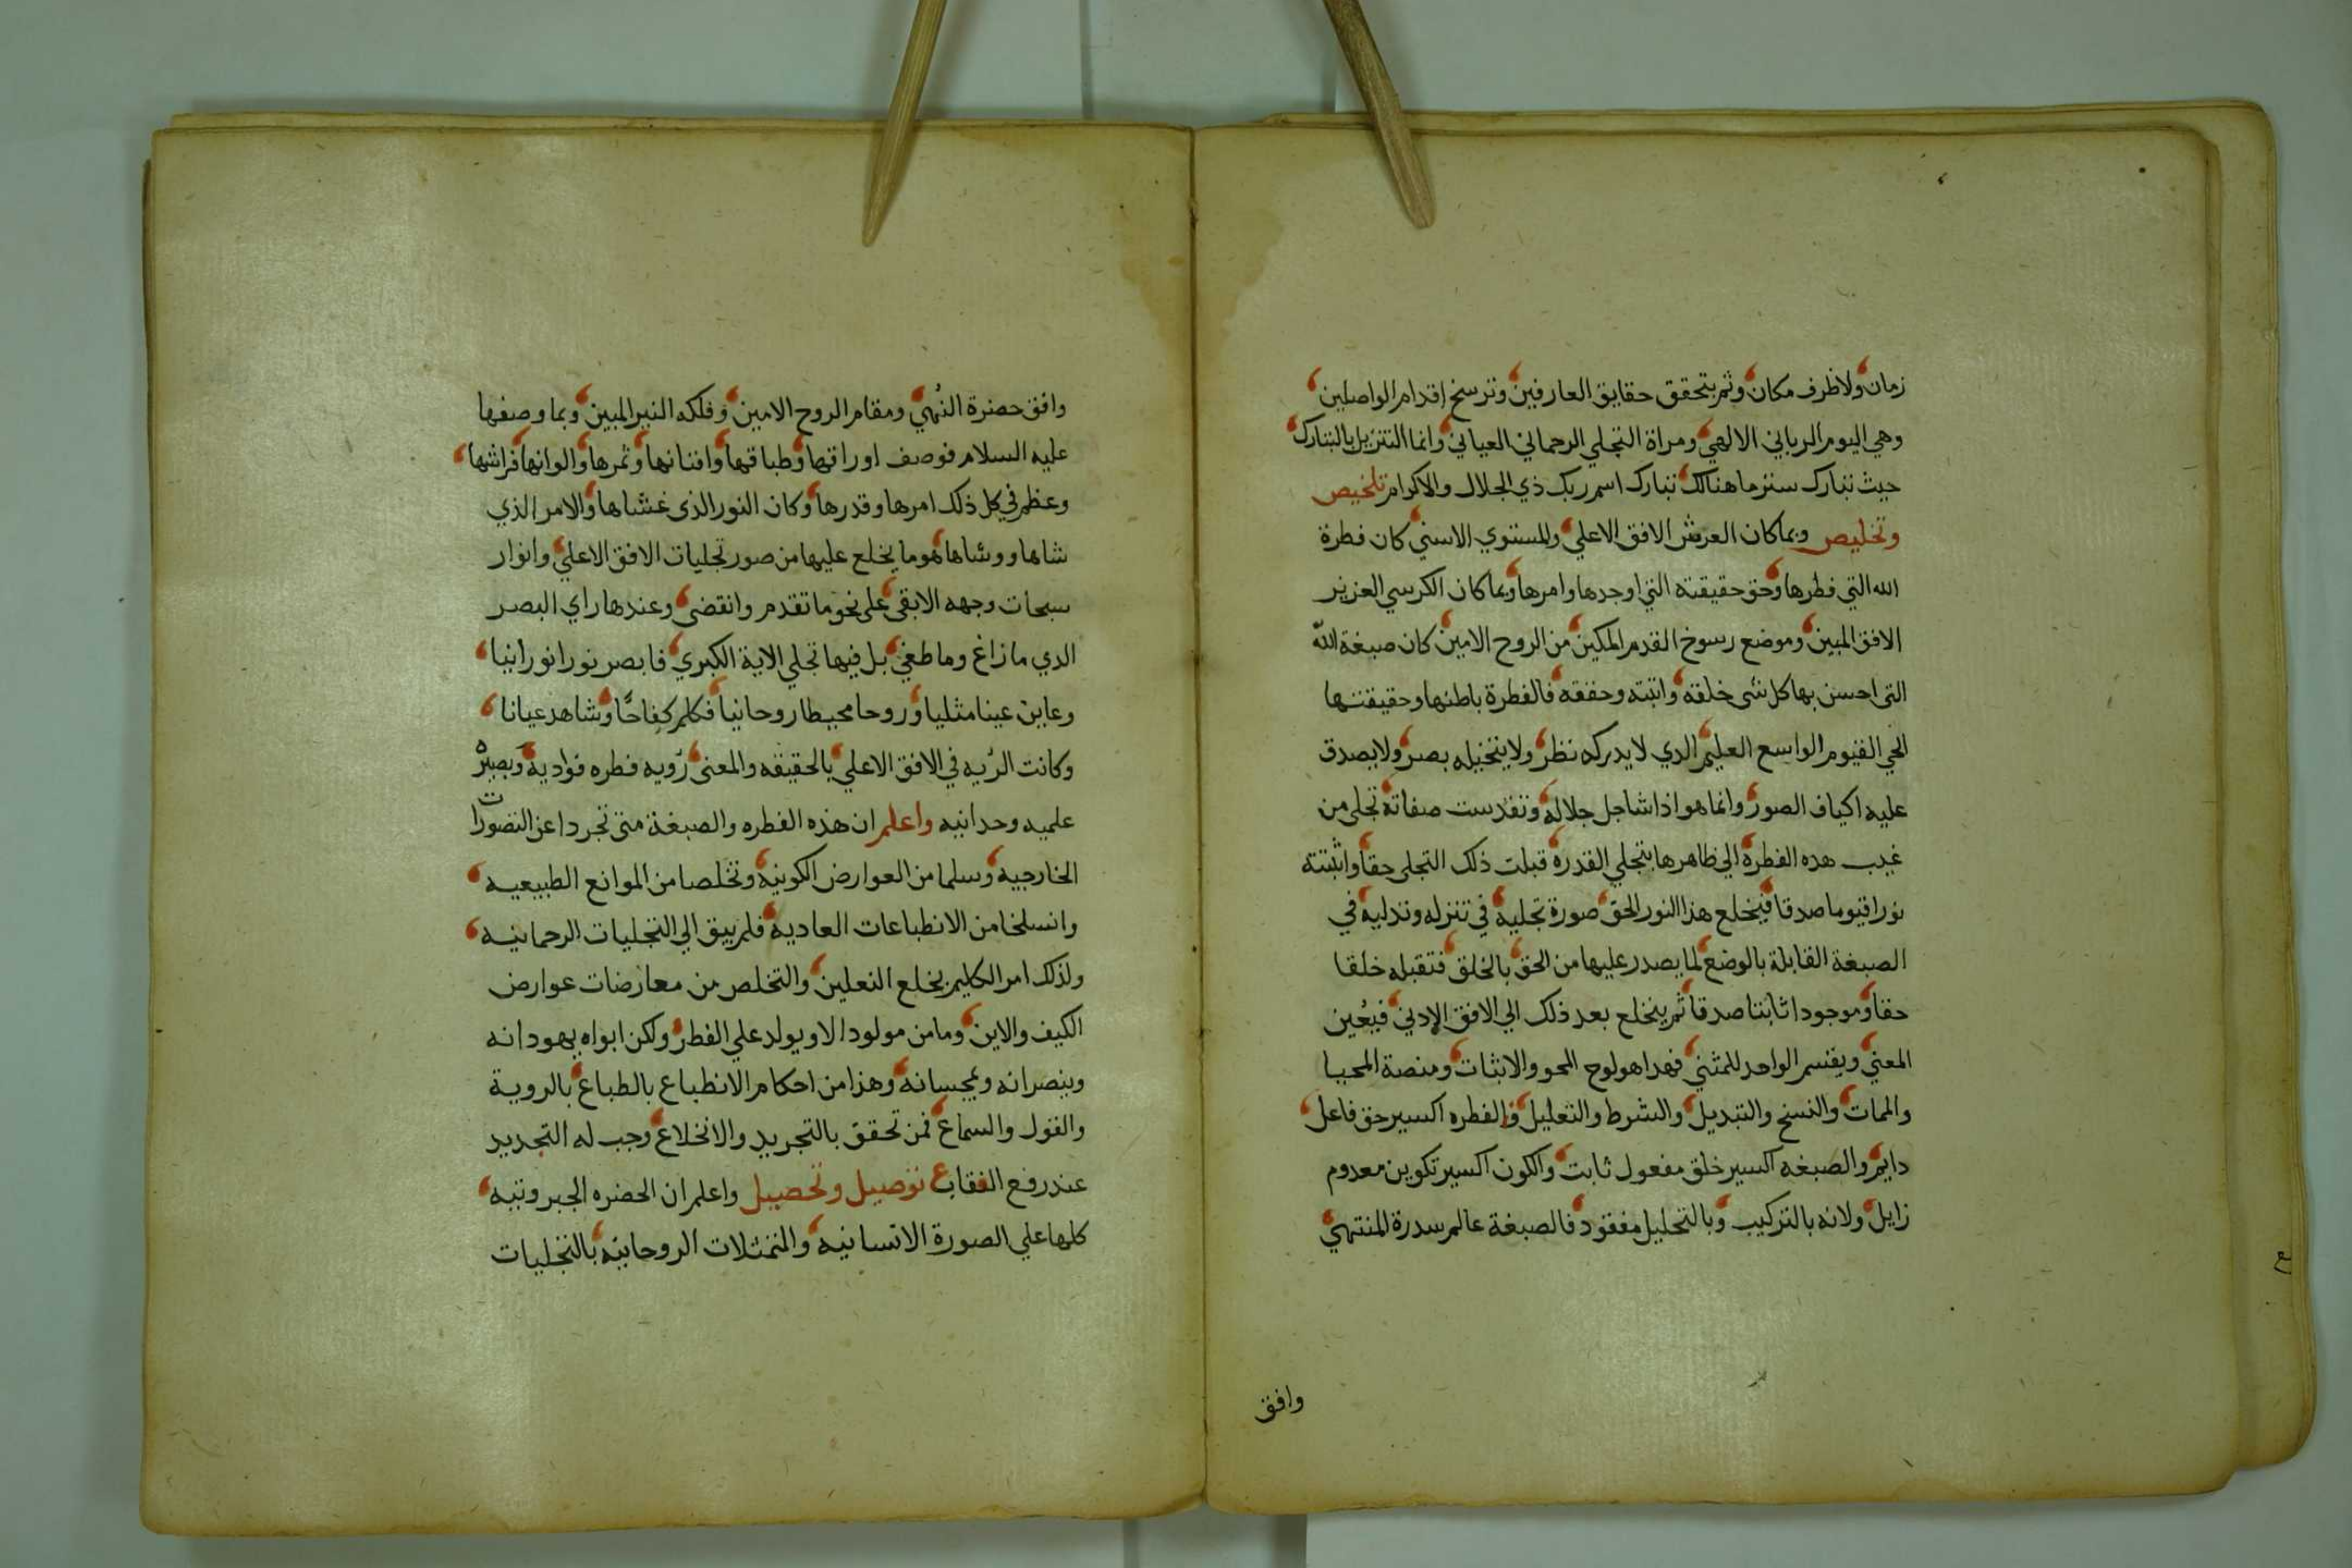 زمان ولا ظرف مكان وثم بتحقق حقايق العارفين وترسخ اقدام الواصلين
وهي اليوم الرباني الالهي ومراة التجلي الرحماني العياني وانما التنزيل بالتبارك
حيث تبارك ستر ما هنالك تبارك اسم ربك ذي الجلال والاكرام تلخيص
وتخليص وبما كان العرش الافق الاعلي والمستوي الاسني كان فطرة
الله التي فطرها وحق حقيقته التي اوجدها وامرها وبما كان الكرسي العزيز
الافق المبين وموضع رسوخ القدم المكين من الروح الامين كان صبغة الله
التي احسن بها كل شي خلقه واتبته وحققه فالفطرة باطنها وحقيقتها
الحي القيوم الواسع العليم الدي لا يدركه نظر ولا يتخيله بصر ولا يصدق
عليه اكياف الصور وانما هو اذا شا جل جلاله وتقدست صفاته تجلى من
غيب هده الفطرة الي ظاهرها بتجلي القدرة قبلت ذلك التجلى حقا واثبتته
نورا قيوما صدقا فيخلع هذا النور الحق صورة تجليه في تنزله وتدليه في
الصبغة القابلة بالوضع لما يصدر عليها من الحق بالخلق فتقبله خلقا
حقا وموجودا ثابتا صدقا ثم ينخلع بعد ذلك الي الافق الادني فيعين
المعني ويقسم الواحد للمثني فهدا هو لوح المحو والاثبات ومنصة المحيا
والممات والنسخ والتبديل والشرط والتعليل والفطره اكسير حق فاعل
دايم والصبغه اكسير خلق مفعول ثابت والكون اكسير تكوين معدوم
زايل ولانه بالتركيب وبالتحليل مفقود فالصبغة عالم سدرة المنتهي
وافق
وافق حضرة النهي ومقام الروح الامين وفلكه النير المبين وبما وصفها
عليه السلام فوصف اوراقها وطباقها وافنانها وثمرها والوانها فراشها
وعظم في كل ذلك امرها وقدرها وكان النور الذى غشاها والامر الذي
شاها ووشاها هو ما يخلع عليها من صور تجليات الافق الاعلي وانوار
سبحات وجهه الابقى على نحو ما تقدم وانقضى وعندها راي البصر
الدي ما زاغ وما طغي بل فيها تجلي الاية الكبري فابصر نورا نورانيا
وعاين عينا مثليا وروحا محيطا روحانيا فكلم كفاحا وشاهد عيانا
وكانت الريه في الافق الاعلي بالحقيقه والمعنى رويه فطره فواديه وبصيره
علميه وحدانيه واعلم ان هذه الفطره والصبغة متى تجردا عن التصورات
الخارجيه وسلما من العوارض الكونيه وتخلصا من الموانع الطبيعيه
وانسلخا من الانطباعات العاديه فلم يبق الي التجليات الرحمانيه
ولذلك امر الكليم بخلع النعلين والتخلص من معارضات عوارض
الكيف والاين وما من مولود الا ويولد علي الفطر ولكن ابواه يهودانه
وينصرانه ويمجسانه وهذا من احكام الانطباع بالطباع بالروية
والقول والسماع فمن تحقق بالتجريد والانخلاع وجب له التجديد
عند رفع القناع توصيل وتحصيل واعلم ان الحضره الجبروتيه
كلها علي الصورة الانسانيه والتمثلات الروحانيه بالتخليات